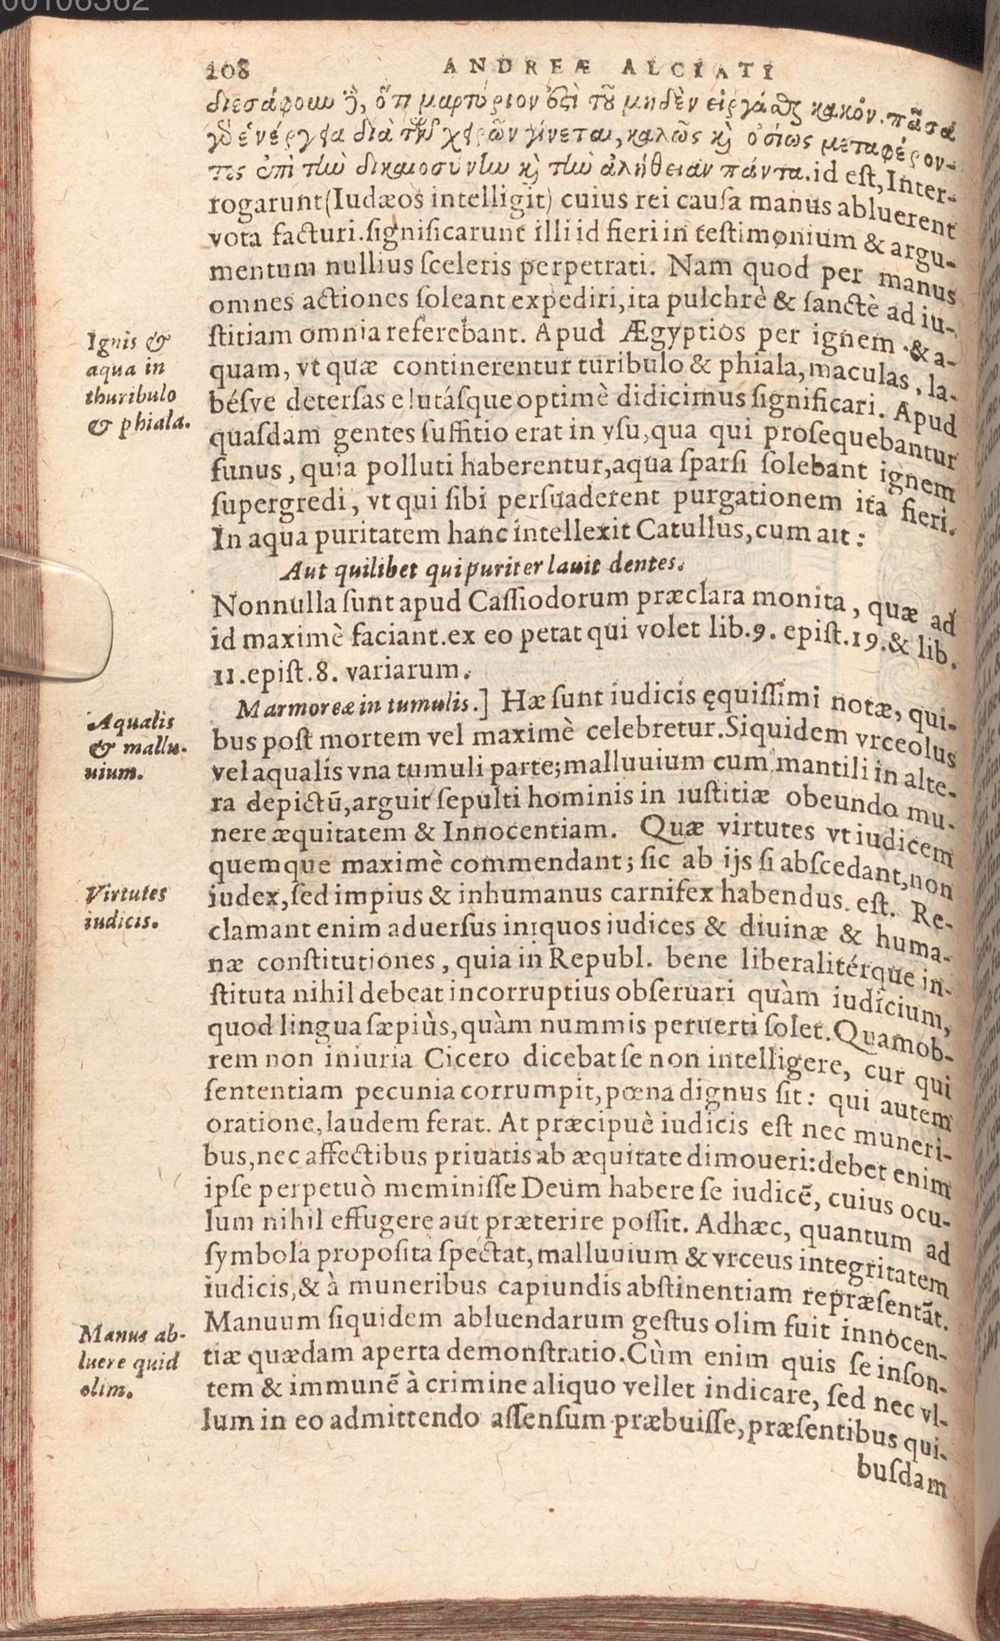 00106362
208 ANDREÆ ALCIATI
διεσάφουν δ, ὅτι μαρτύριον ἐστὶ τοῦ μηδὲν εἰργάσθαι κακόν. πᾶσα
γὸ ἐνέργεια διὰ τῶν χειρῶν γίνεται, καλῶς κὶ ὁσίως μεταφέρον-
τες ἐπὶ τὴν δικαιοσύνην κὶ τὴν ἀλήθειαν πάντα. id eſt, Inter-
rogarunt (Iudæos intelligit) cuius rei cauſa manus abluerent
vota facturi. ſignificarunt illi id fieri in teſtimonium & argu-
mentum nullius ſceleris perpetrati. Nam quod per manus
omnes actiones ſoleant expediri, ita pulchrè & ſanctè ad iu-
ſtitiam omnia referebant. Apud Ægyptios per ignem & a-
quam, vt quæ continerentur turibulo & phiala, maculas, la-
béſve deterſas elutáſque optimè didicimus ſignificari. Apud
quaſdam gentes ſuffitio erat in vſu, qua qui proſequebantur
funus, quia polluti haberentur, aqua ſparſi ſolebant ignem
ſupergredi, vt qui ſibi perſuaderent purgationem ita fieri.
In aqua puritatem hanc intellexit Catullus, cum ait:
Aut quilibet qui puriter lauit dentes.
Nonnulla ſunt apud Caſſiodorum præclara monita, quæ ad
id maximè faciant. ex eo petat qui volet lib. 9. epiſt. 19. & lib.
11. epiſt. 8. variarum.
Marmoreæ in tumulis.] Hæ ſunt iudicis ęquiſſimi notæ, qui-
bus poſt mortem vel maximè celebretur. Siquidem vrceolus
vel aqualis vna tumuli parte; malluuium cum mantili in alte-
ra depictũ, arguit ſepulti hominis in iuſtitiæ obeundo mu-
nere æquitatem & Innocentiam. Quæ virtutes vt iudicem
quemque maximè commendant; ſic ab ijs ſi abſcedant, non
iudex, ſed impius & inhumanus carnifex habendus eſt. Re-
clamant enim aduerſus iniquos iudices & diuinæ & huma-
næ conſtitutiones, quia in Republ. bene liberalitérque in-
ſtituta nihil debeat incorruptius obſeruari quàm iudicium,
quod lingua ſæpiùs, quàm nummis peruerti ſolet. Quamob-
rem non iniuria Cicero dicebat ſe non intelligere, cur qui
ſententiam pecunia corrumpit, pœna dignus ſit: qui autem
oratione, laudem ferat. At præcipuè iudicis eſt nec muneri-
bus, nec affectibus priuatis ab æquitate dimoueri: debet enim
ipſe perpetuò meminiſſe Deum habere ſe iudicẽ, cuius ocu-
lum nihil effugere aut præterire poſſit. Adhæc, quantum ad
ſymbola propoſita ſpectat, malluuium & vrceus integritatem
iudicis, & à muneribus capiundis abſtinentiam repræſentãt.
Manuum ſiquidem abluendarum geſtus olim fuit innocen-
tiæ quædam aperta demonſtratio. Cùm enim quis ſe inſon-
tem & immunẽ à crimine aliquo vellet indicare, ſed nec vl-
lum in eo admittendo aſſenſum præbuiſſe, præſentibus qui-
buſdam
Ignis &
aqua in
thuribulo
& phiala.
Aqualis
& mallu-
uium.
Virtutes
iudicis.
Manus ab-
luere quid
olim.